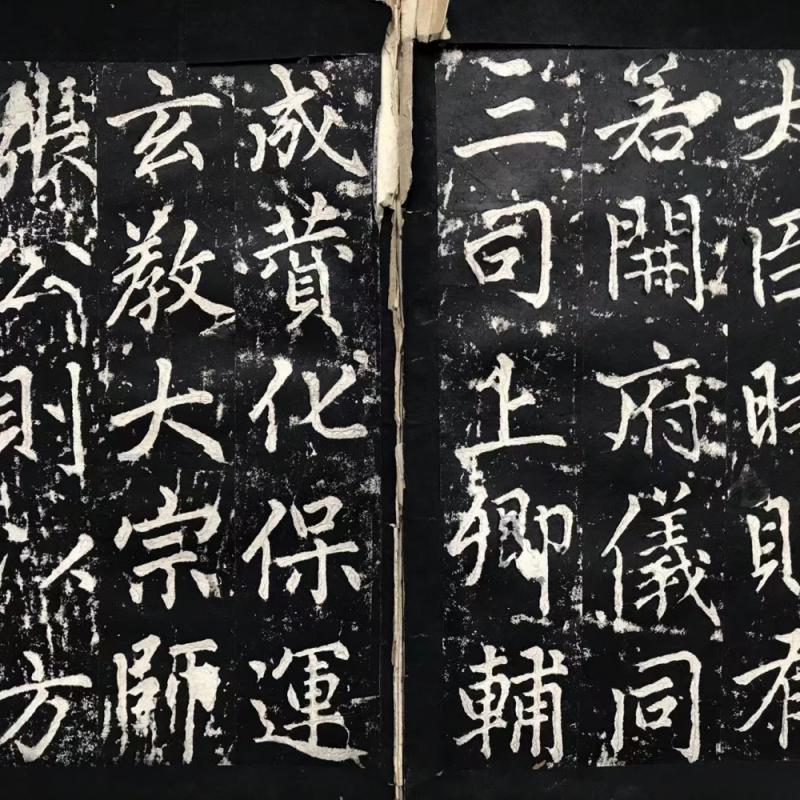 大臣時則有
若開府儀同
三司上卿輔
成賛化保運
玄教大宗師
張公則以方